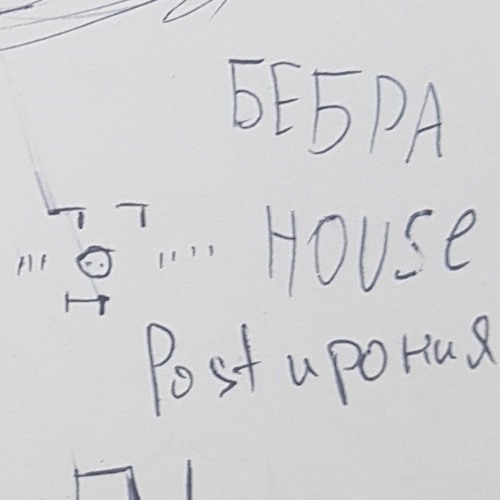 БЕБРА
HOUSe
Post ирония